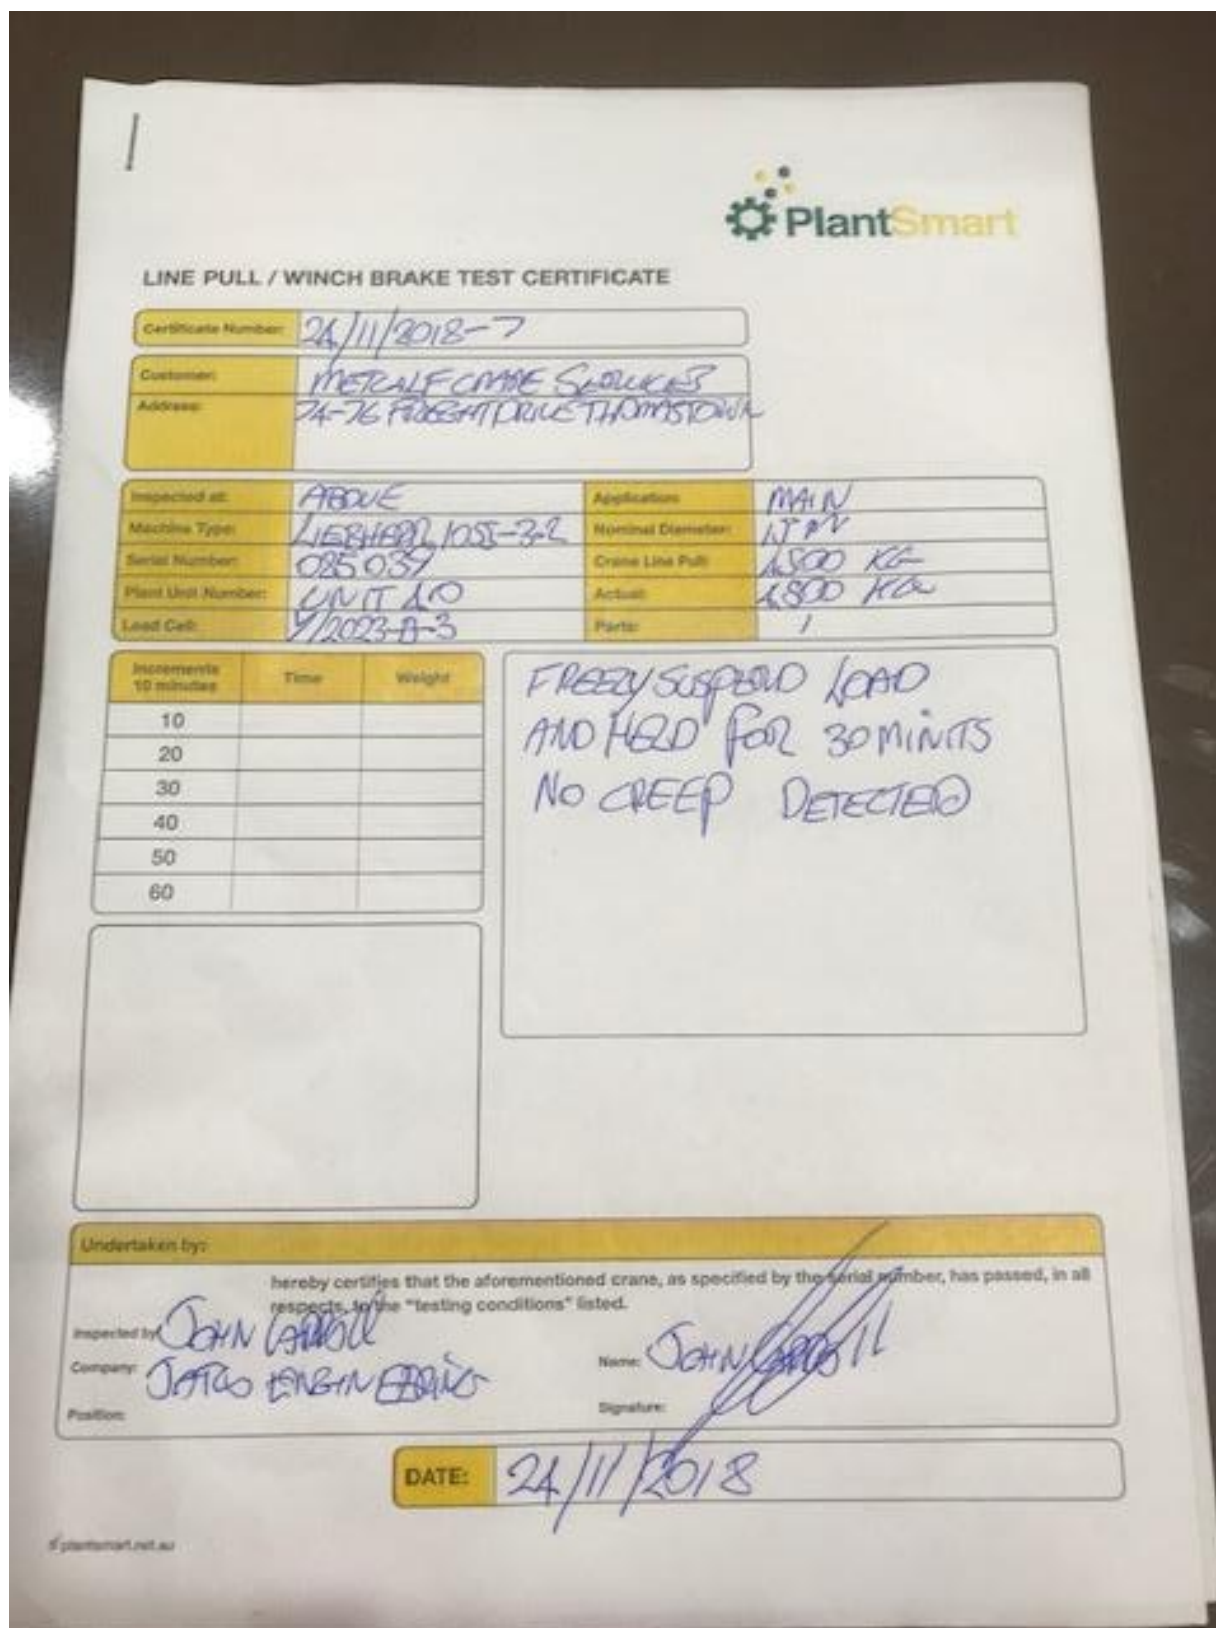 PlantSmart
LINE PULL / WINCH BRAKE TEST CERTIFICATE
Certificate Number: 24/11/2018-7
Customer: METCALF CRANE SERVICES
Address: 74-76 FREIGHT DRIVE THOMASTOWN
Inspected at: ABOVE
Application: MAIN
Machine Type: LIEBHERR
Nominal Diameter:
Serial Number: 085039
Crane Line Pull: 4500 KG
Plant Unit Number: UNIT 40
Actual: 4800 KG
Load Cell:
Parts: 1
Increments 10 minutes Time Weight
10
20
30
40
50
60
FREELY SUSPEND LOAD
AND HELD FOR 30 MINITS
NO CREEP DETECTED
Undertaken by:
hereby certifies that the aforementioned crane, as specified by the serial number, has passed, in all
respects, to the "testing conditions" listed.
Inspected by: JOHN CARROLL
Company: ENGINEERING
Name: JOHN CARROLL
Position:
Signature:
DATE: 24/11/2018
plantsmart.net.au